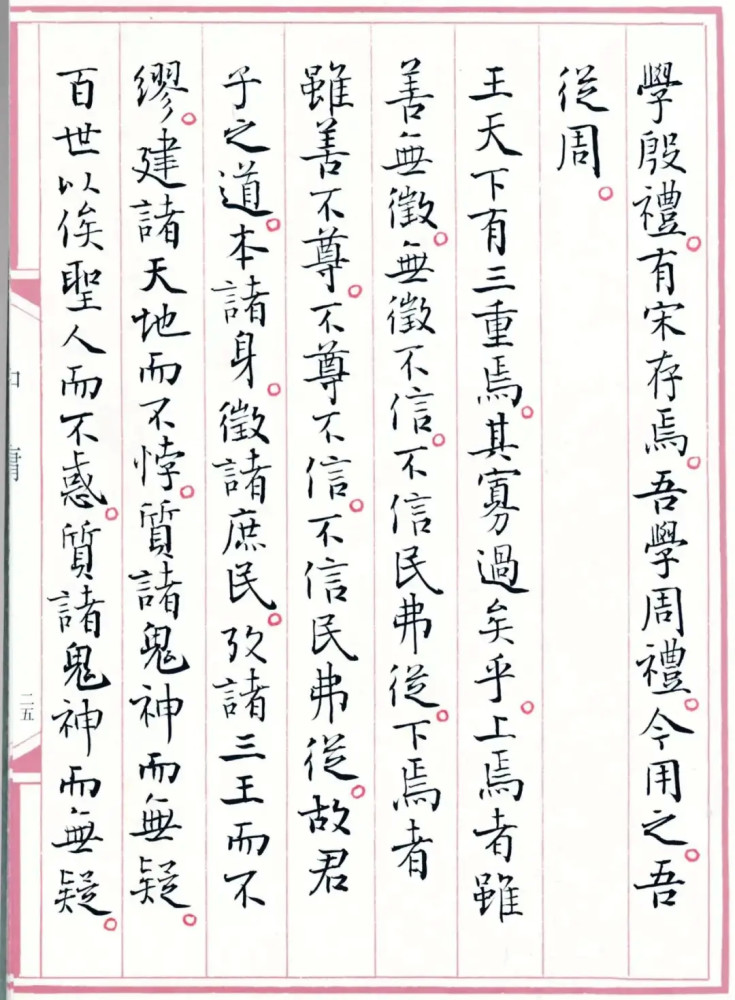 學殷禮。有宋存焉。吾學周禮。今用之。吾
從周。
王天下有三重焉。其寡過矣乎。上焉者雖
善無徵。無徵不信。不信民弗從。下焉者
雖善不尊。不尊不信。不信民弗從。故君
子之道。本諸身。徵諸庶民。攷諸三王而不
繆。建諸天地而不悖。質諸鬼神而無疑。
百世以俟聖人而不惑。質諸鬼神而無疑。
中庸
二五